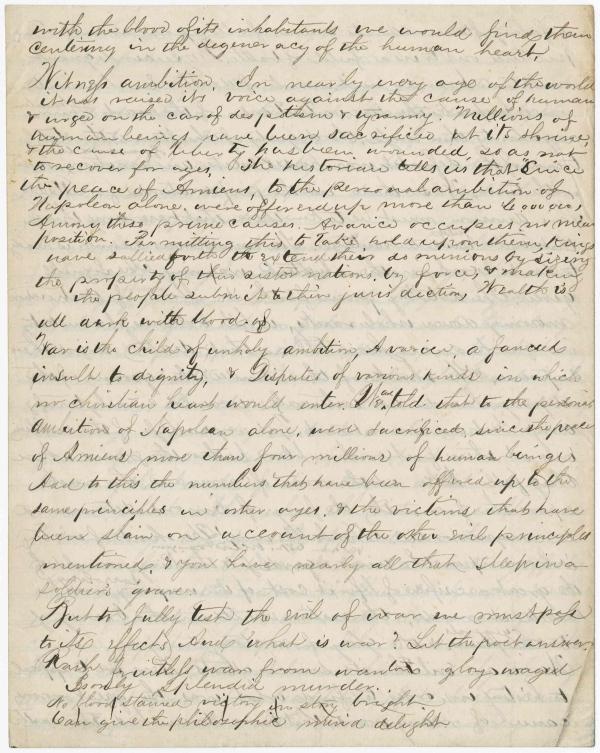 with the blood of its inhabitants we would find them
centering in the degeneracy of the human heart.
Witness ambition. In nearly every age of the world
it has raised its voice against the cause of human
& urge on the car of despotism & tyranny. Millions of
human beings have been sacrificed at its shrine
& the cause of liberty has been wounded, so as not
to recover for ages. The historian tells us that "Since
the peace of Amiens, to the personal ambition of
Napoleon alone, were offered up more than 4,000,000,
Among these prime causes. Avarice occupies no mean
position. Permitting this to take hold upon them, kings
have sallied forth to extend their dominions by seizing
the property of their sister nations, by force, & making
the people submit to their jurisdiction, Wealth is
all dark with blood of
War is the child of unholy ambition, Avarice, a fancied
insult to dignity, & Disputes of various kinds in which
no christian heart would enter. We are told that to the personal
ambition of Napolean alone, were sacrificed, since the peace
of Amiens more than four millions of human beings
Add to this the numbers that have been offered up to the
same principles in other ages, & the victims that have
been slain on account of the other evil principles
mentioned, & you have nearly all that sleep in a
soldiers grave.
But to fully test the evil of war we must pass
to its effects And what is war? Let the poet answer,
Rash fruitless war from wanton glory waged
Is only splendid murder.
No blood stained victory in story bright
Can give the philosophic mind delight